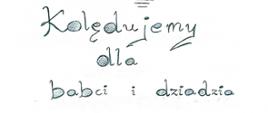 Kolędujemy
dla
babci i dziadzia